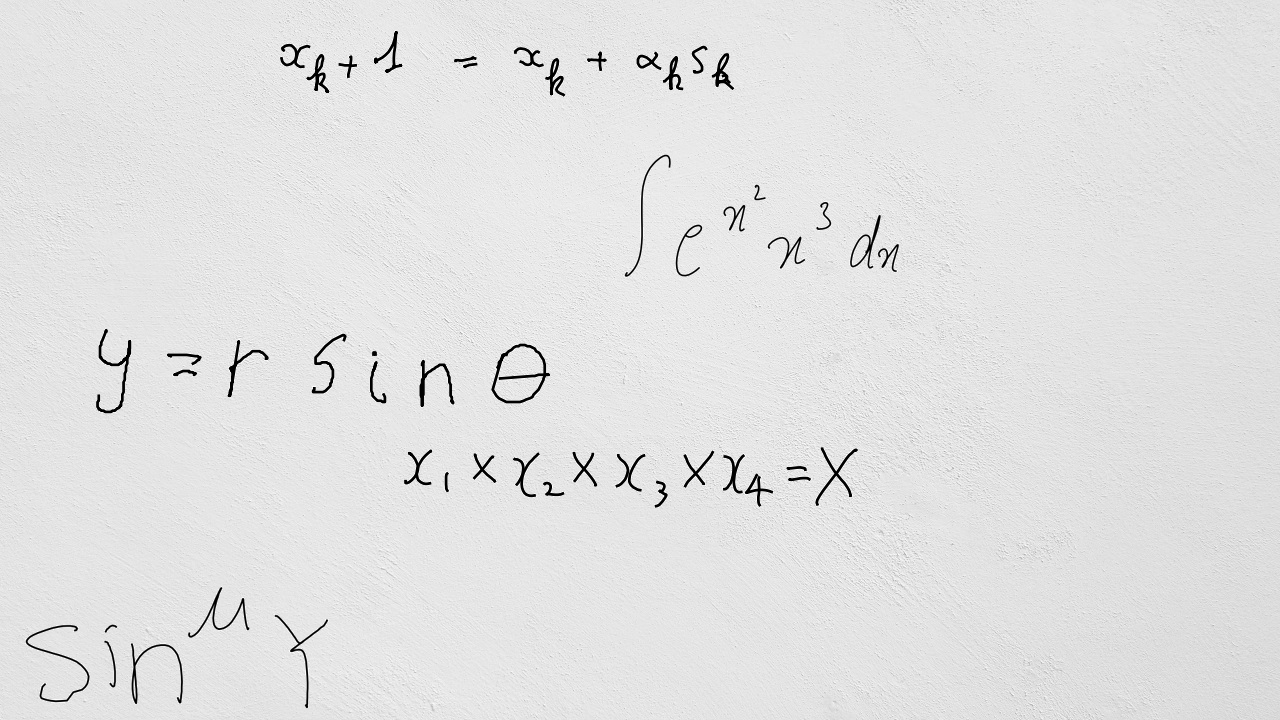 x_k + 1 = x_k + α_k s_k
∫ e^{x^2} x^3 dx
y = r sin θ
x_1 × x_2 × x_3 × x_4 = X
sin^μ Y